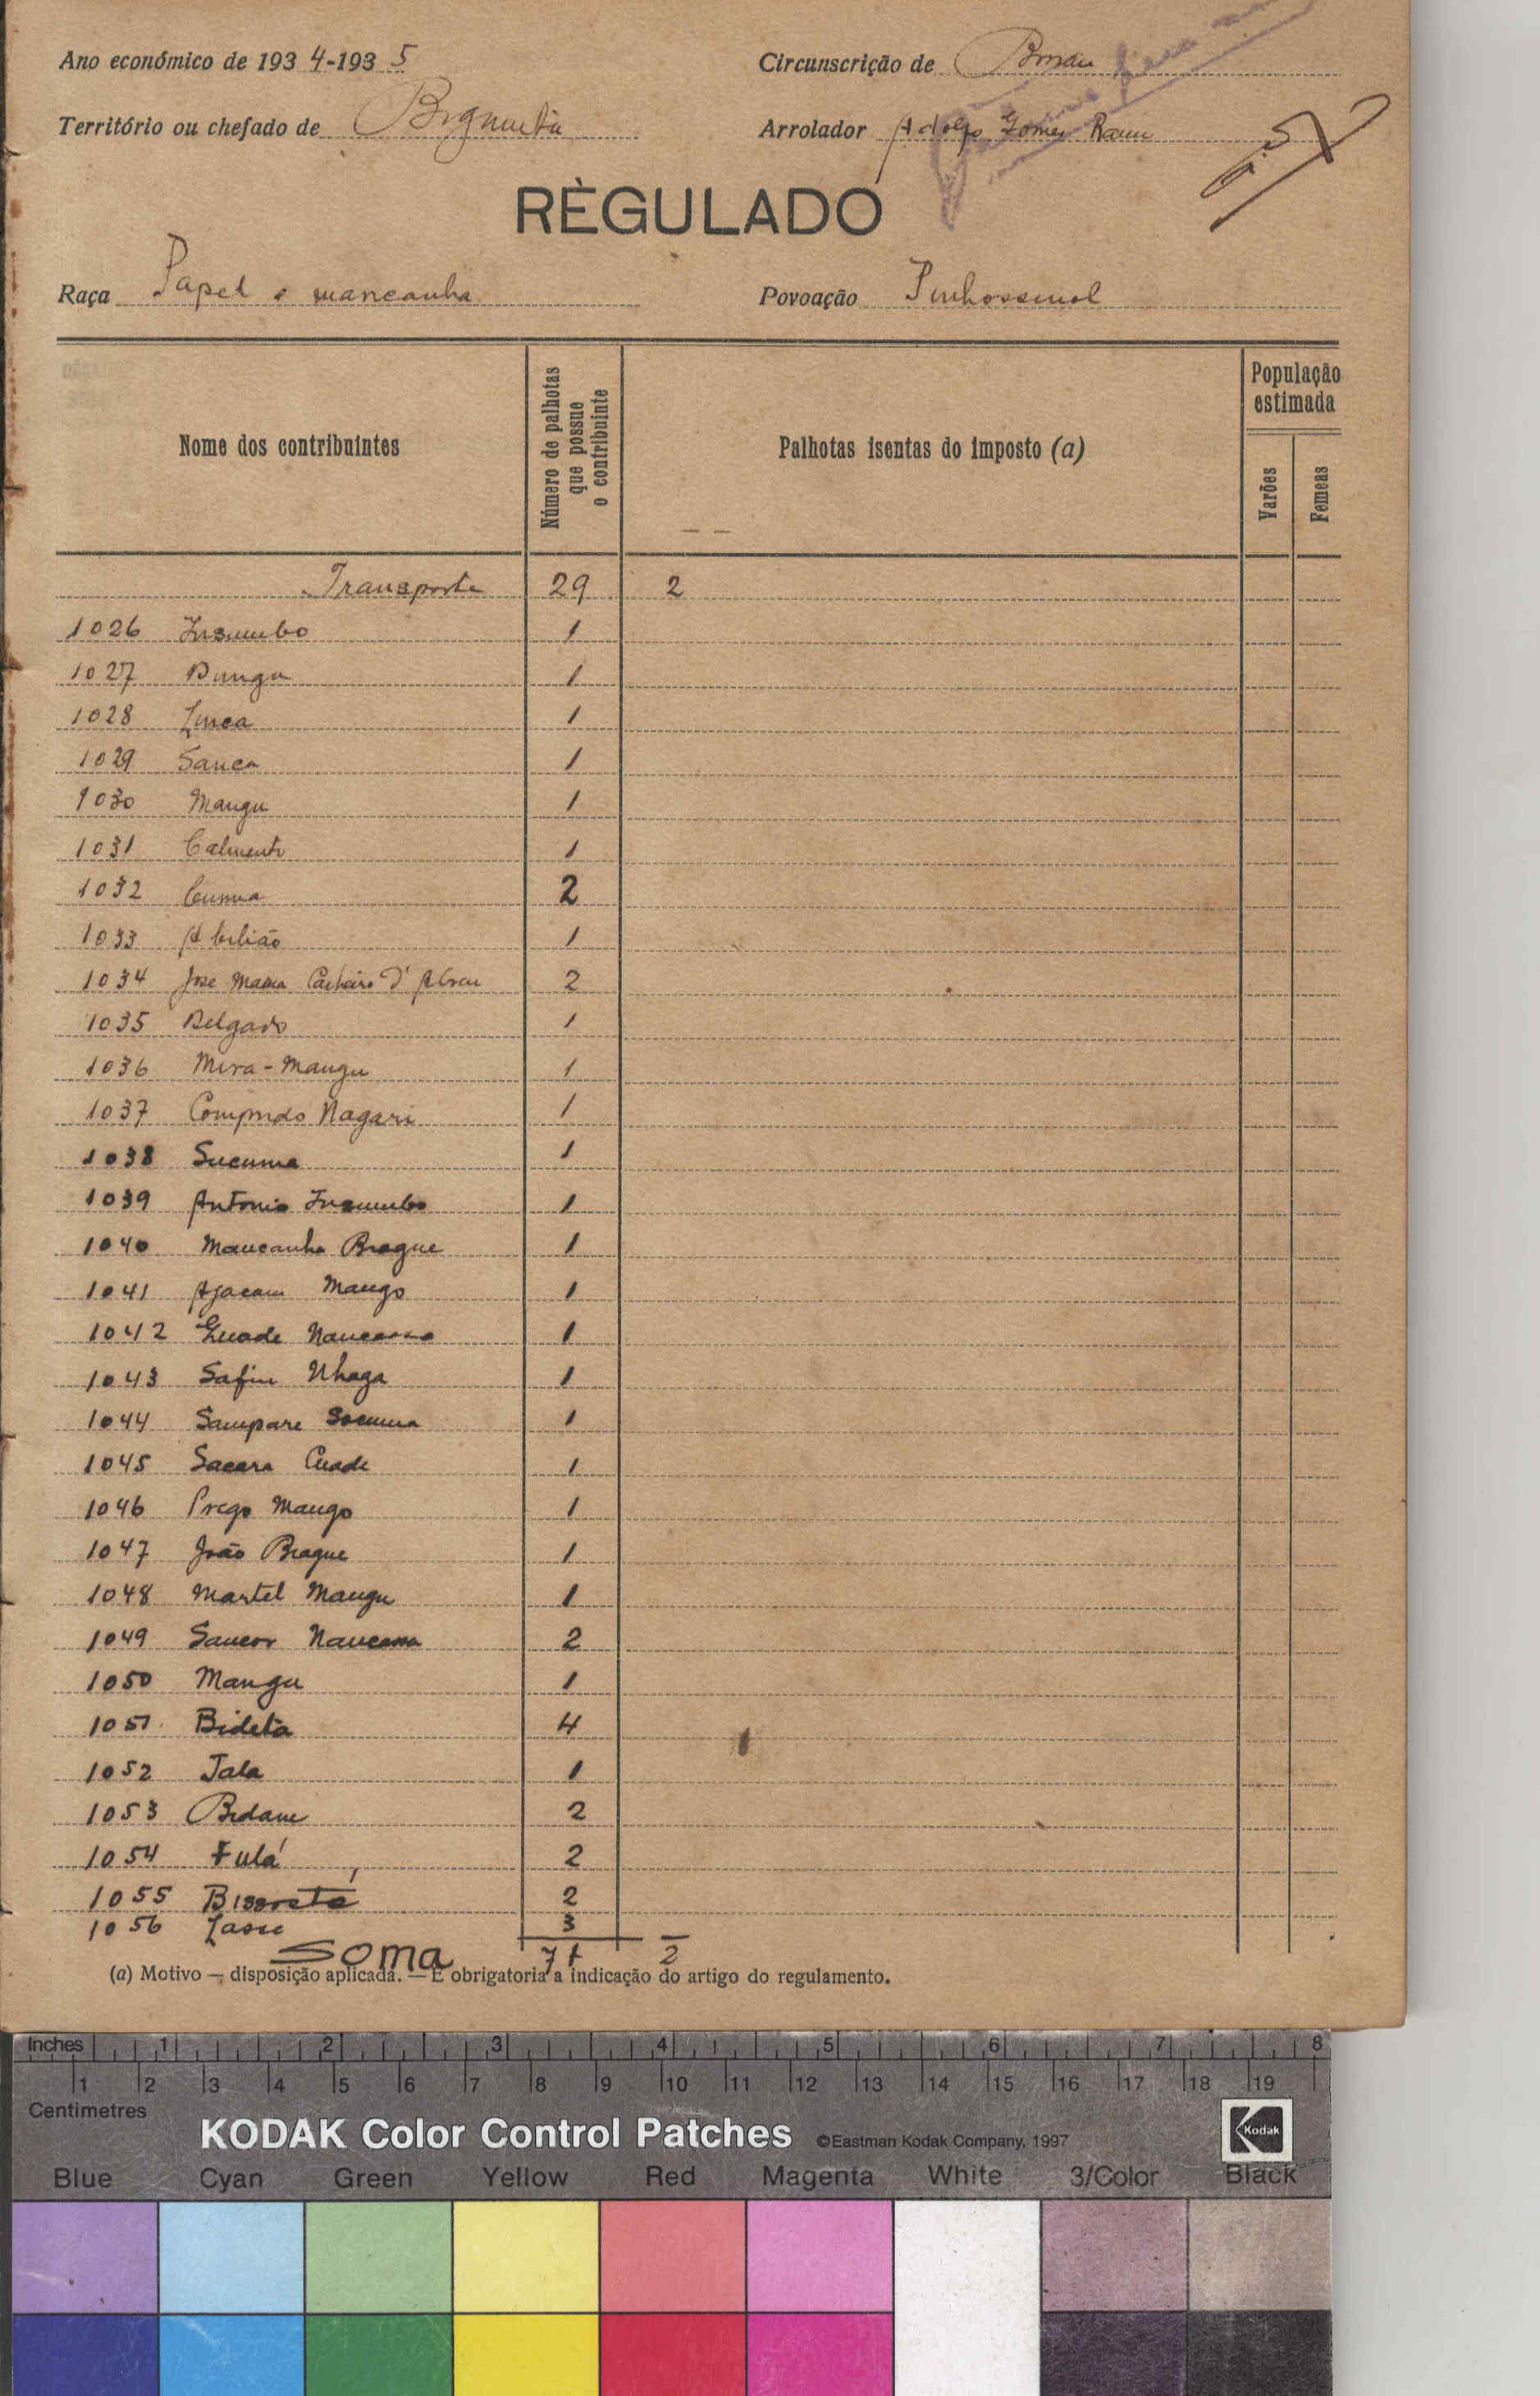 Ano económico de 1934-1935
Circunscrição de
Território ou chefado de
Arrolador Adolfo Gomes
RÈGULADO
Raça Papel e mancanha
Povoação
Nome dos contribuintes
Número de palhotas que possue o contribuinte
Palhotas isentas do imposto (a)
População estimada
Varões
Femeas
Transporte 29 2
1026 Insumbo 1
1027 Dungu 1
1028 1
1029 Sanca 1
1030 Mangu 1
1031 1
1032 2
1033 1
1034 José Maria D'Abreu 2
1035 Delgado 1
1036 Mira-Mangu 1
1037 Comprido Nagari 1
1038 Sucuma 1
1039 Antonio Insumbo 1
1040 Mancanha Brague 1
1041 Mango 1
1042 1
1043 Safim Nhaga 1
1044 Sampare 1
1045 Sacara Cuade 1
1046 Prego Mango 1
1047 João Brague 1
1048 Martel Mangu 1
1049 2
1050 Mangu 1
1051 Bideta 4
1052 Tala 1
1053 2
1054 Fulá 2
1055 2
1056 3
Soma 71 2
(a) Motivo — disposição aplicada. — É obrigatoria a indicação do artigo do regulamento.
Inches 1 2 3 4 5 6 7 8
1 2 3 4 5 6 7 8 9 10 11 12 13 14 15 16 17 18 19
Centimetres
KODAK Color Control Patches ©Eastman Kodak Company, 1997 Kodak
Blue Cyan Green Yellow Red Magenta White 3/Color Black